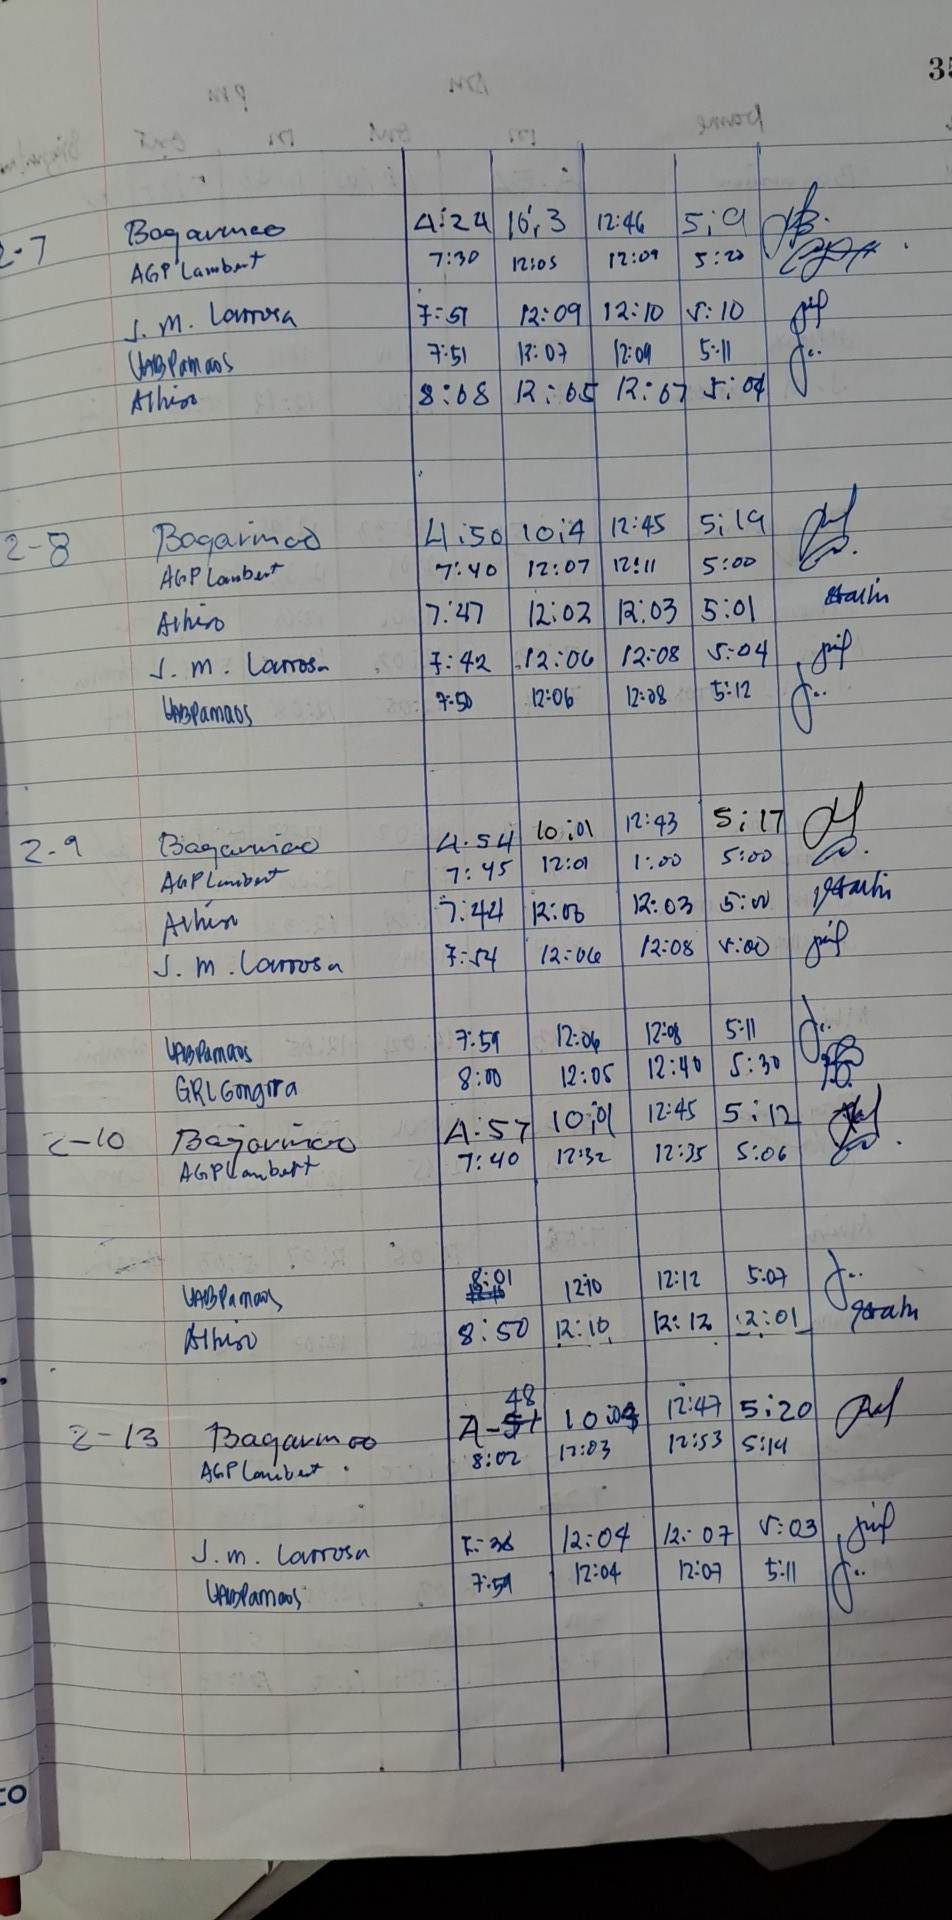 35
2-7 Bagarinao 4:24 10:3 12:46 5:9
AGPLambert 7:30 12:05 12:09 5:20
J. M. Larrosa 7:51 12:09 12:10 5:10
UABPamaos 7:51 12:07 12:09 5:11
Alhiro 8:08 12:05 12:07 5:04
2-8 Bagarinao 4:50 10:4 12:45 5:19
AGPLambert 7:40 12:07 12:11 5:00
Alhiro 7:47 12:02 12:03 5:01
J. M. Larrosa 7:42 12:06 12:08 5:04
UABPamaos 7:50 12:06 12:08 5:12
2-9 Bagarinao 4:54 10:01 12:43 5:17
AGPLambert 7:45 12:01 1:00 5:00
Alhiro 7:44 12:03 5:00
J. M. Larrosa 7:54 12:06 12:08 5:00
UABPamaos 7:59 12:06 12:08 5:11
GRLGongora 8:00 12:05 12:40 5:30
2-10 Bagarinao 4:57 10:01 12:45 5:12
AGPLambert 7:40 12:32 12:35 5:06
UABPamaos 8:01 12:10 12:12 5:07
Alhiro 8:50 12:10 12:12 2:01
48
2-13 Bagarinao 12:47 5:20
AGPLambert 8:02 12:03 12:53 5:19
J. M. Larrosa 12:04 12:07 5:03
UABPamaos 7:59 12:04 12:07 5:11
CO